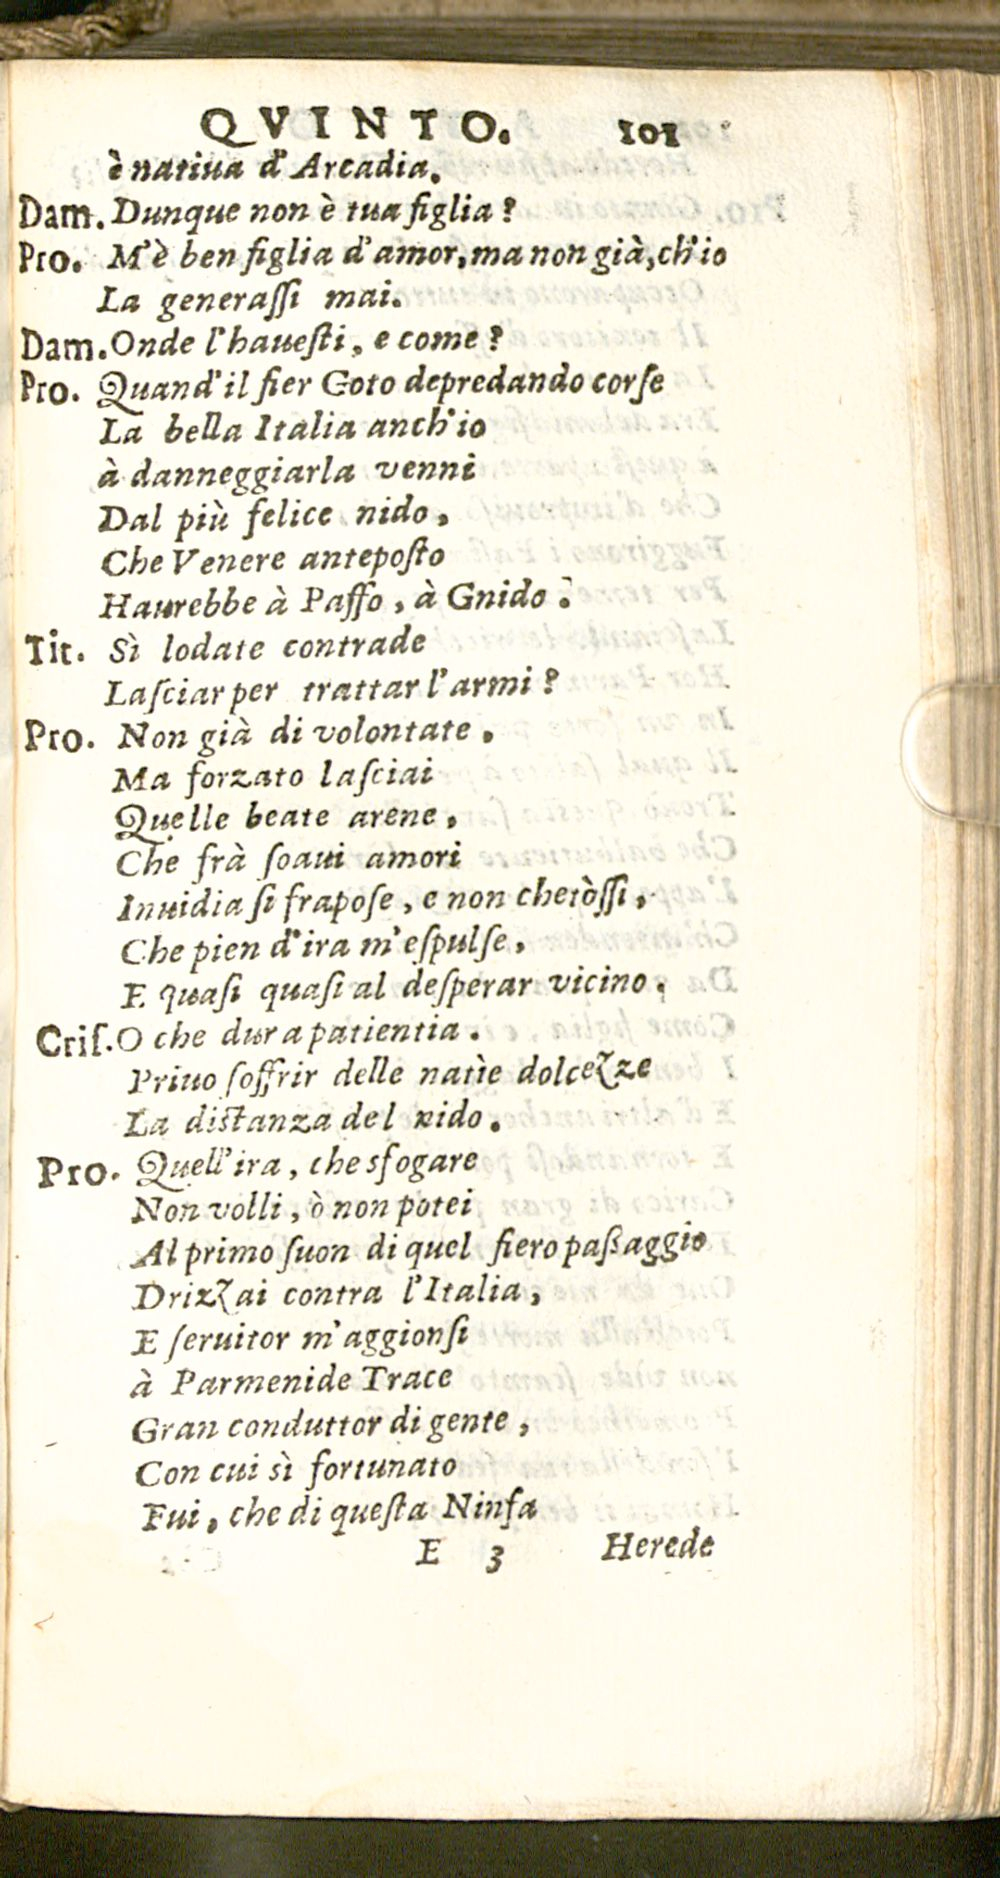 QVINTO. 101
è natiua d'Arcadia.
Dam. Dunque non è tua figlia?
Pro. M'è ben figlia d'amor, ma non già, ch'io
La generaſſi mai.
Dam. Onde l'haueſti, e come?
Pro. Quand'il fier Goto depredando corſe
La bella Italia anch'io
à danneggiarla venni
Dal più felice nido,
Che Venere antepoſto
Haurebbe à Paffo, à Gnido.
Tit. Sì lodate contrade
Laſciar per trattar l'armi?
Pro. Non già di volontate,
Ma forzato laſciai
Quelle beate arene,
Che frà ſoaui amori
Inuidia ſi frapoſe, e non cheròſſi,
Che pien d'ira m'eſpulſe,
E quaſi quaſi al deſperar vicino.
Criſ. O che dura patientia.
Priuo ſoffrir delle natìe dolcezze
La diſtanza del nido.
Pro. Quell'ira, che sfogare
Non volli, ò non potei
Al primo ſuon di quel fiero paßaggio
Drizzai contra l'Italia,
E ſeruitor m'aggionſi
à Parmenide Trace
Gran conduttor di gente,
Con cui sì fortunato
Fui, che di queſta Ninfa
E 3 Herede